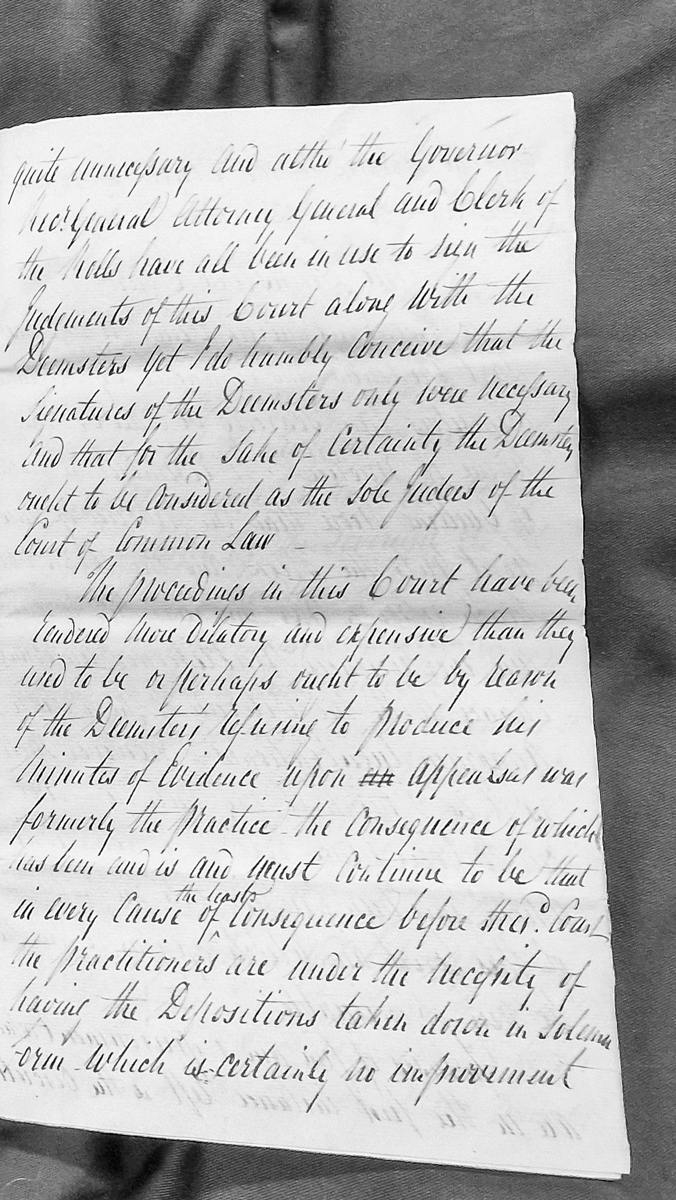 quite unnecessary and altho' the Governor
Recr. General Attorney General and Clerk of
the Rolls have all been in use to sign the
Judgments of this Court along with the
Deemsters yet I do humbly Conceive that the
Signatures of the Deemsters only were necessary
And that for the Sake of Certainty the Deemsters
ought to be considered as the Sole Judges of the
Court of Common Law
The proceedings in this Court have been
rendered More Dilatory and expensive than they
used to be or perhaps ought to be by reason
of the Deemsters refusing to produce his
Minutes of Evidence upon an Appeals as was
formerly the practice the Consequence of which
has been and is and must Continue to be that
in every Cause of the least Consequence before the sd. Court
the practitioners are under the necessity of
having the Depositions taken down in Solemn
form which is certainly no improvement